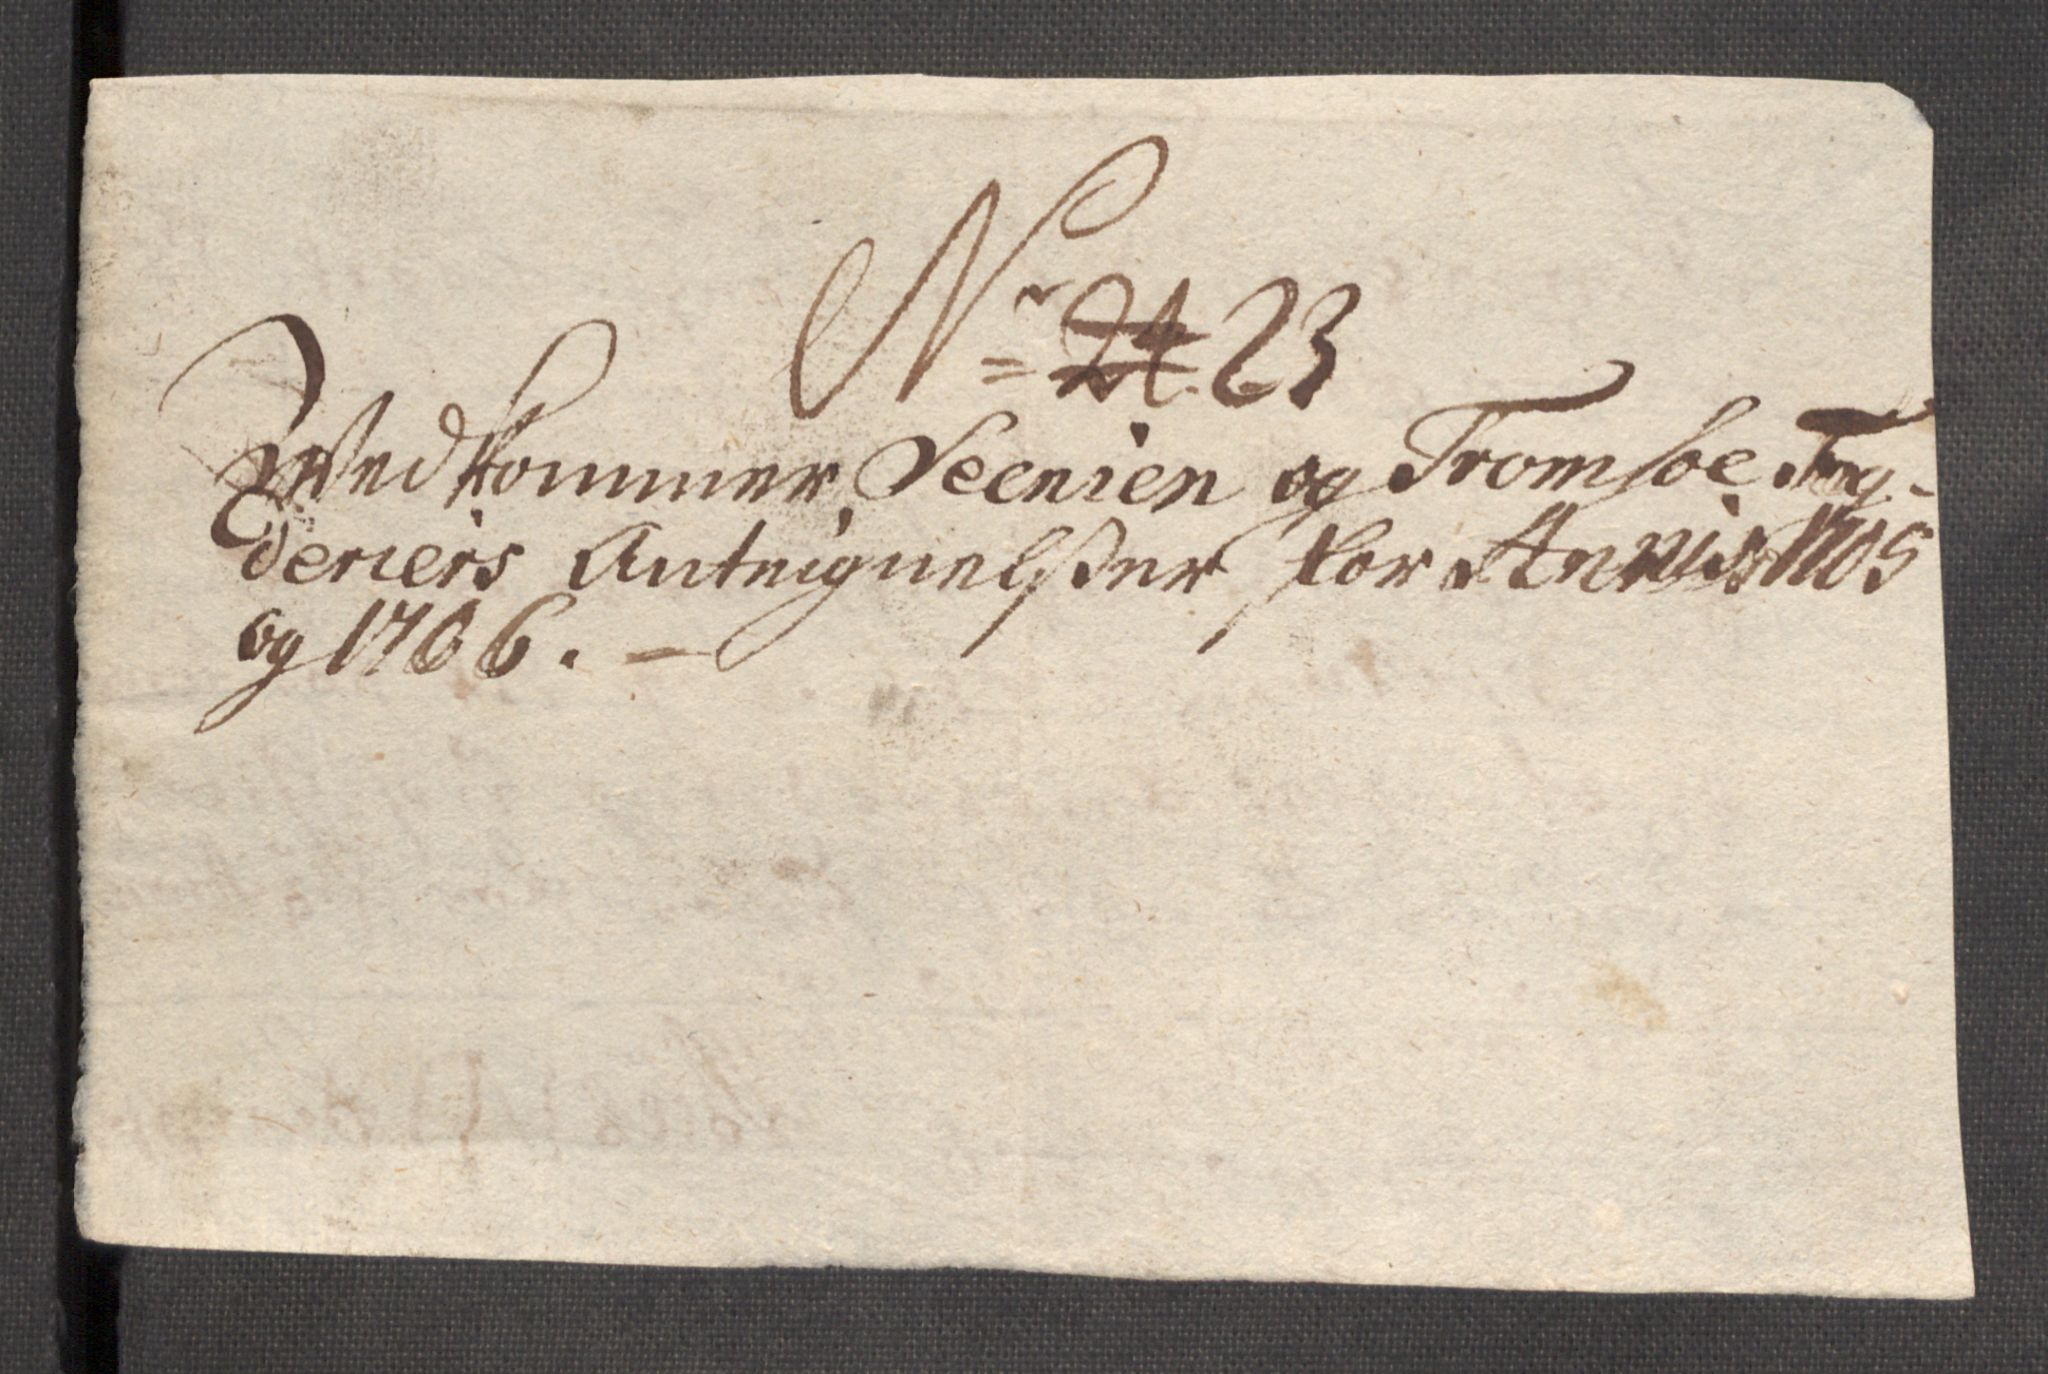 Nr = 24. 23
Vedkommer Seenien og Tromsøe Fog-
deriers Anteignelßer for Annis 1705
og 1706. —